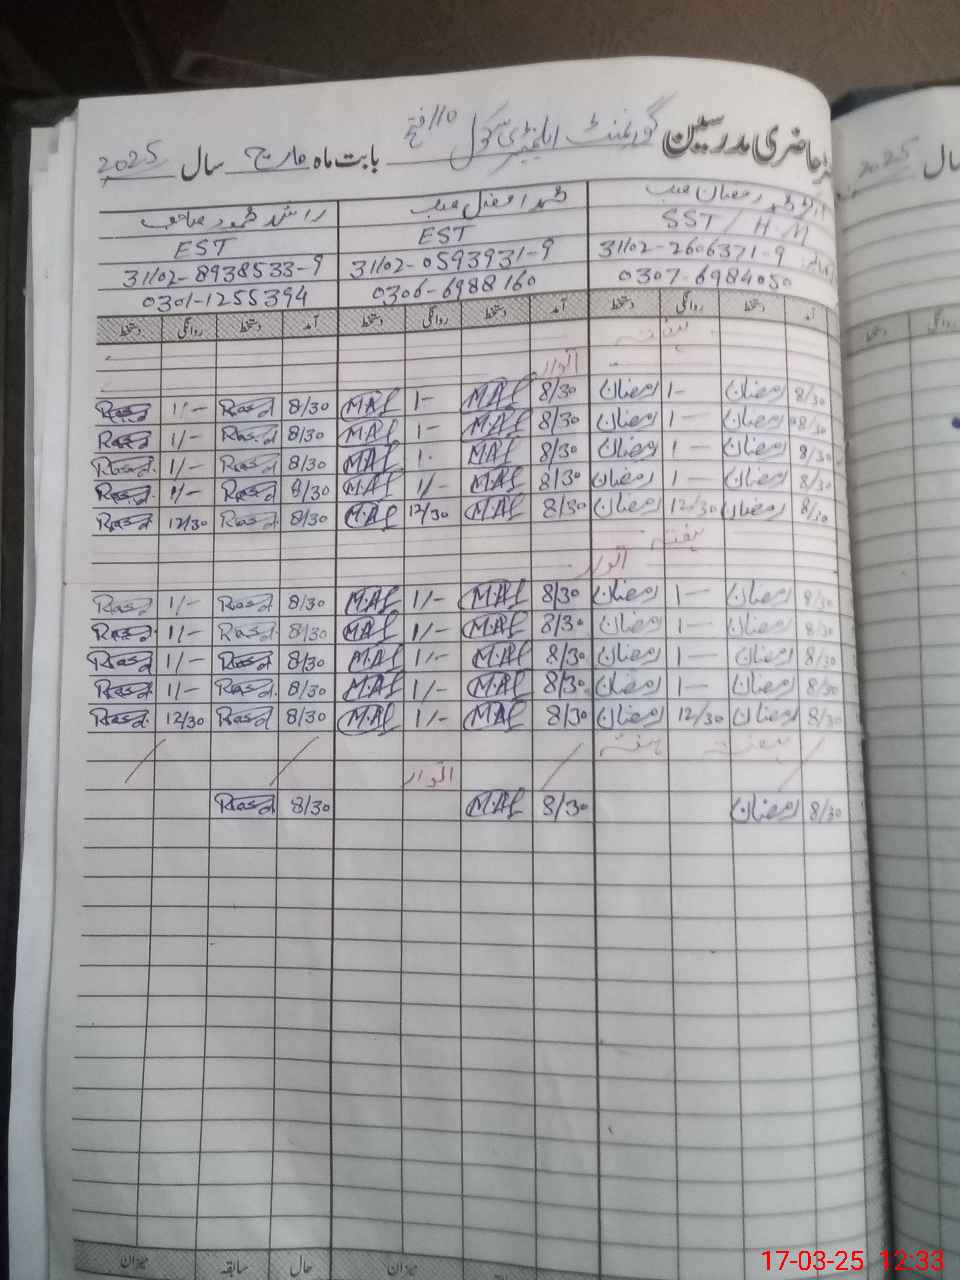 رجسٹر حاضری مدرسین گورنمنٹ ایلیمنٹری سکول 110 بابت ماہ مارچ سال 2025
سال 2025
محمد رمضان صاحب محمد افضل صاحب راشد محمود صاحب
SST / H.M EST EST
31102-2606371-9 31102-0593931-9 31102-8938533-9
0307-6984050 0306-6988160 0301-1255394
آمد دستخط روانگی دستخط آمد دستخط روانگی دستخط آمد دستخط روانگی دستخط
روانگی دستخط
ہفتہ
اتوار
8/30 رمضان 1- رمضان 8/30 M.Af 1- M.Af 8/30 Rasd 1/- Rasd
8/30 رمضان 1- رمضان 8/30 M.Af 1- M.Af 8/30 Rasd 1/- Rasd
8/30 رمضان 1- رمضان 8/30 M.Af 1. M.Af 8/30 Rasd 1/- Rasd
8/30 رمضان 1- رمضان 8/30 M.Af 1/- M.Af 8/30 Rasd 1/- Rasd
8/30 رمضان 12/30 رمضان 8/30 M.Af 12/30 M.Af 8/30 Rasd 12/30 Rasd
ہفتہ
اتوار
8/30 رمضان 1- رمضان 8/30 M.Af 1/- M.Af 8/30 Rasd 1/- Rasd
8/30 رمضان 1- رمضان 8/30 M.Af 1/- M.Af 8/30 Rasd 1/- Rasd
8/30 رمضان 1- رمضان 8/30 M.Af 1/- M.Af 8/30 Rasd 1/- Rasd
8/30 رمضان 1- رمضان 8/30 M.Af 1/- M.Af 8/30 Rasd 1/- Rasd
8/30 رمضان 12/30 رمضان 8/30 M.Af 1/- M.Af 8/30 Rasd 12/30 Rasd
ہفتہ ہفتہ
اتوار
8/30 رمضان 8/30 M.Af 8/30 Rasd
میزان حال سابقہ میزان
17-03-25 12:33